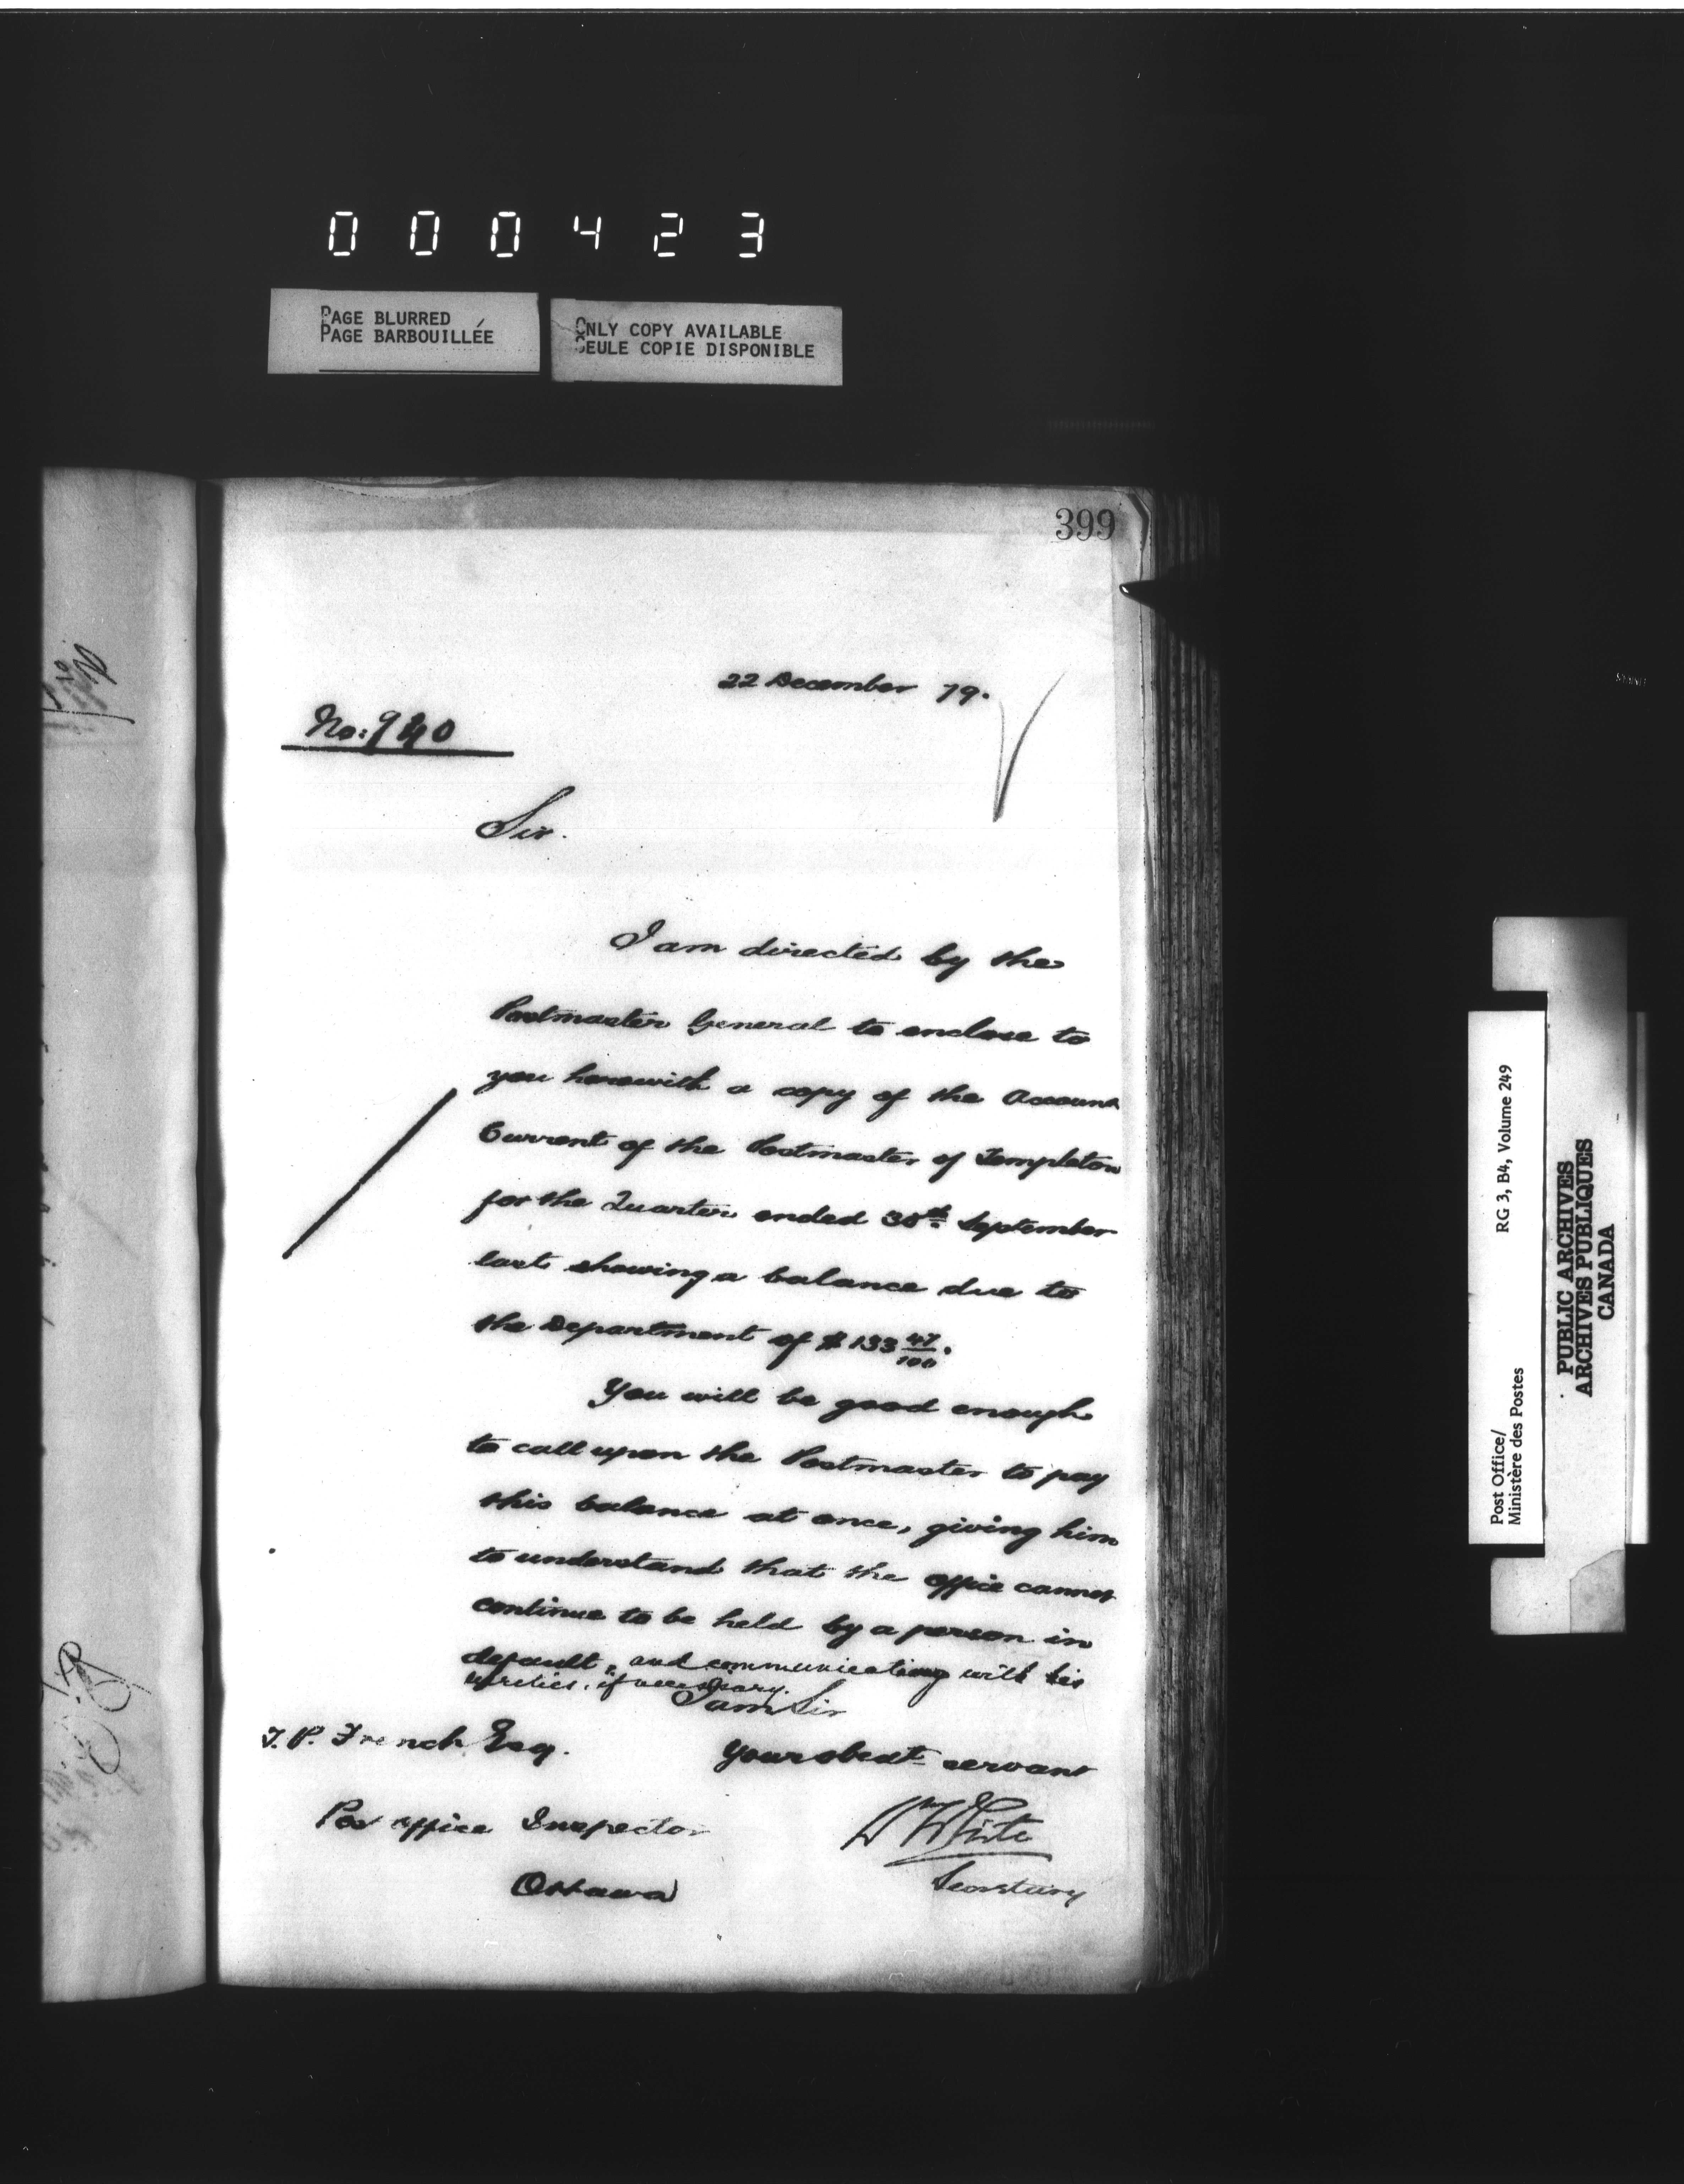 000423
PAGE BLURRED
PAGE BARBOUILLÉE
ONLY COPY AVAILABLE
SEULE COPIE DISPONIBLE
399
22 December 79.
No: 940
Sir.
I am directed by the
Postmaster General to enclose to
you herewith a copy of the Account
Current of the Postmaster of Templeton
for the Quarter ended 30th September
last showing a balance due to
the Department of $133 47/100.
You will be good enough
to call upon the Postmaster to pay
this balance at once, giving him
to understand that the office cannot
continue to be held by a person in
default, and communicating with his
sureties, if necessary.
I am Sir
T. P. French Esq.
Your obedt servant
Post office Inspector
Wm White
Secretary
Ottawa
Post Office/
Ministère des Postes
RG 3, B4, Volume 249
PUBLIC ARCHIVES
ARCHIVES PUBLIQUES
CANADA